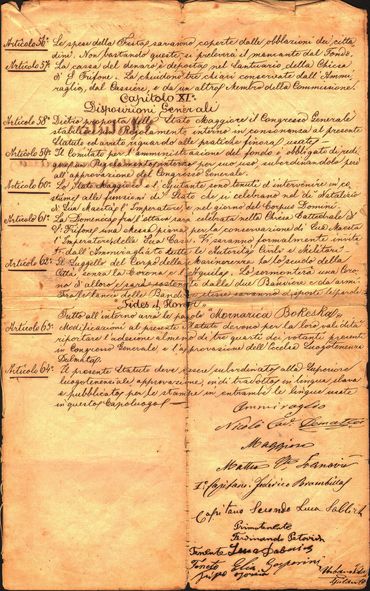 Articolo 56° Le spese della Festa saranno coperte dalle obblazioni dei citta
dini. Non bastando queste, si preleverà il mancante dal Fondo.
Articolo 57° La cassa del denaro è deposta nel Santuario della Chiesa
di S. Trifone. La chiudono tre chiavi conservate dall'Ammi
raglio, dal Cassiere, e da un altro Membro della Commissione.
Capitolo XI°
Disposizioni Generali
Articolo 58° Dietro proposta dello Stato Maggiore il Congresso Generale
Regolamento interno in consonanza al presente
Statuto ed avuto riguardo alle pratiche finora usate.
Articolo 59° Il Comitato per l'Amministrazione del fondo è obbligato di redi
gere un Regolamento interno per suo uso, subordinandolo però
all'approvazione del Congresso Generale.
Articolo 60° Lo Stato Maggiore e l'Ajutante sono tenuti d'intervenire in co
stume alle funzioni di Stato che si celebrano nel dì Natalizio
di Sua Maestà l'Imperatore, e nel giorno del Corpus Domini.
Articolo 61° La Domenica fra l'ottava sarà celebrata nella Chiesa Cattedrale di
S. Trifone una messa piana per la conservazione di Sua Maestà
l'Imperatore e della Sua Casa. Vi saranno formalmente invita
ti dall'Ammiraglio tutte le Autorità Civili e Militari.
Articolo 62° Il Suggello del Corpo della Marinerezza ha lo scudo della
Città, senza la Corona e l'Aquila. Lo sormonterà una Coro
na d'alloro e sarà dalle due Bandiere e da armi
Fra le lance delle Bandiere saranno disposte le parole
"Fides et Honor"
Tutto all'intorno avrà le parole Mornarica Bokeška
Articolo 63° Modificazioni al presente Statuto devono per la loro validità
riportare l'adesione almeno di tre quarti dei votanti presenti
in Congresso Generale e l'approvazione dell'Eccelsa Luogotenenza
Dalmata.
Articolo 64° Il presente Statuto deve essere subordinato alla Superiore
luogotenenziale approvazione, indi tradotto in lingua slava
e pubblicato per le stampe in entrambe le lingue usate
in questo Capoluogo.
Ammiraglio
Maggiore
I° Capitano Federico
Capitano Secondo Luca
Primotenente
Ferdinando Petovich
Tenente Luca